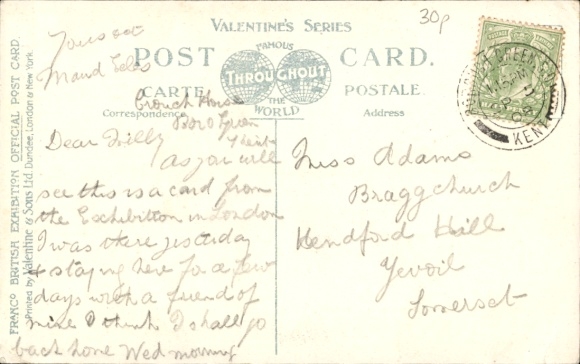 VALENTINE'S SERIES
30p
POST CARD.
FAMOUS
THROUGHOUT
THE
WORLD
CARTE POSTALE
Correspondence
Address
FRANCO BRITISH EXHIBITION OFFICIAL POST CARD.
Printed by Valentine & Sons Ltd. Dundee, London & New York
GREEN
KENT
Yours etc
Maud
Crouch House
Boro Green
Kent
Dear Willy
As you will
see this is a card from
the Exhibition in London
I was there yesterday
& staying here for a few
days with a friend of
mine I think I shall go
back home Wed morning
Miss Adams
Braggchurch
Hendford Hill
Yevoil
Somerset